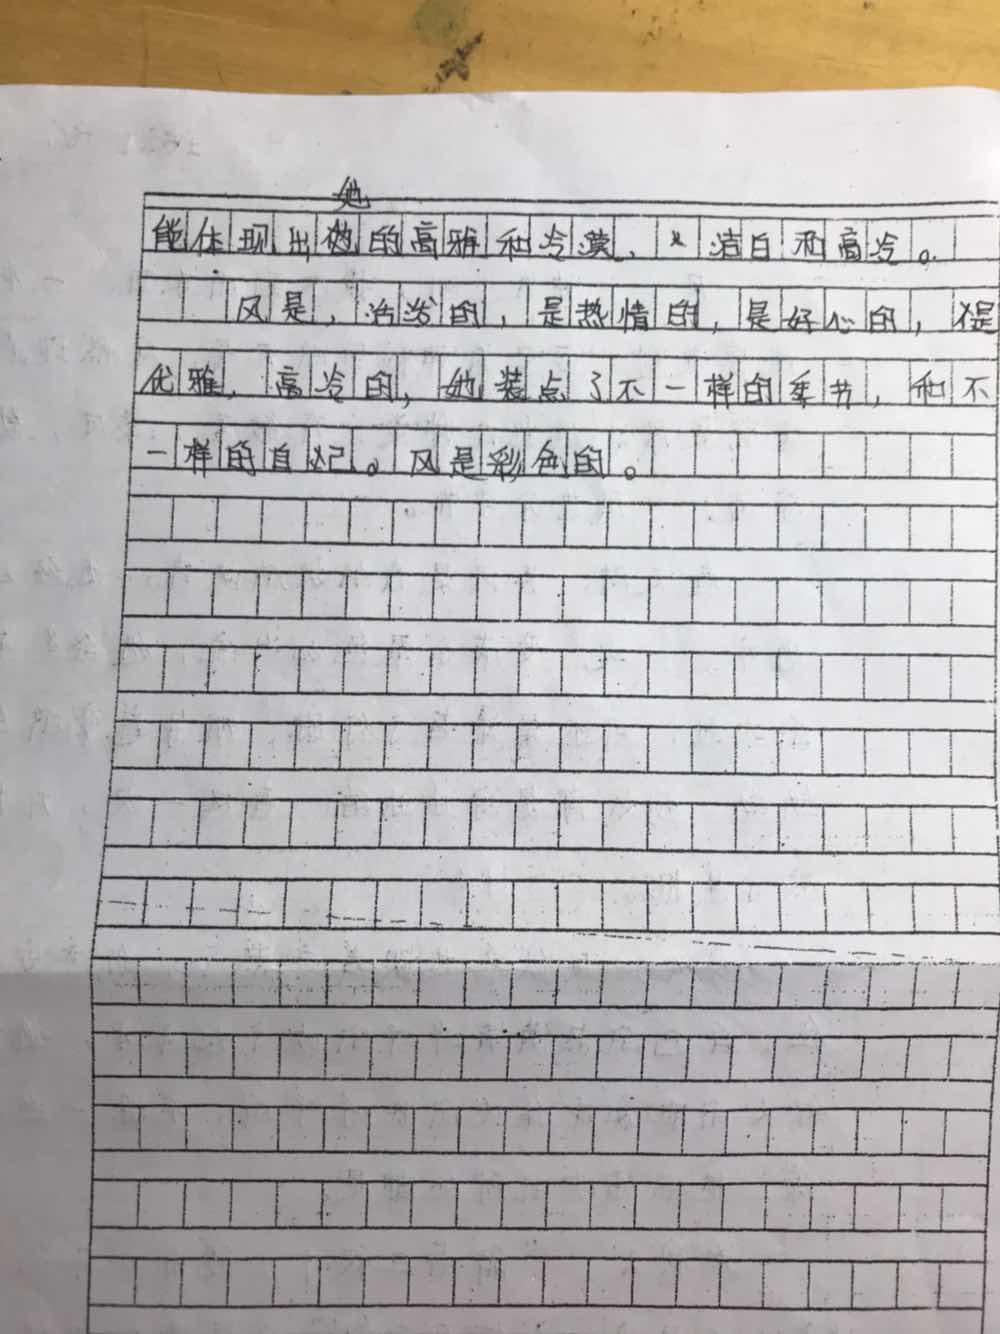 她
能体现出她的高雅和冷漠、洁白和高冷。
风是,活泼的,是热情的,是好心的,
优雅,高冷的,她装点了不一样的季节,和不
一样的自己。风是彩色的。